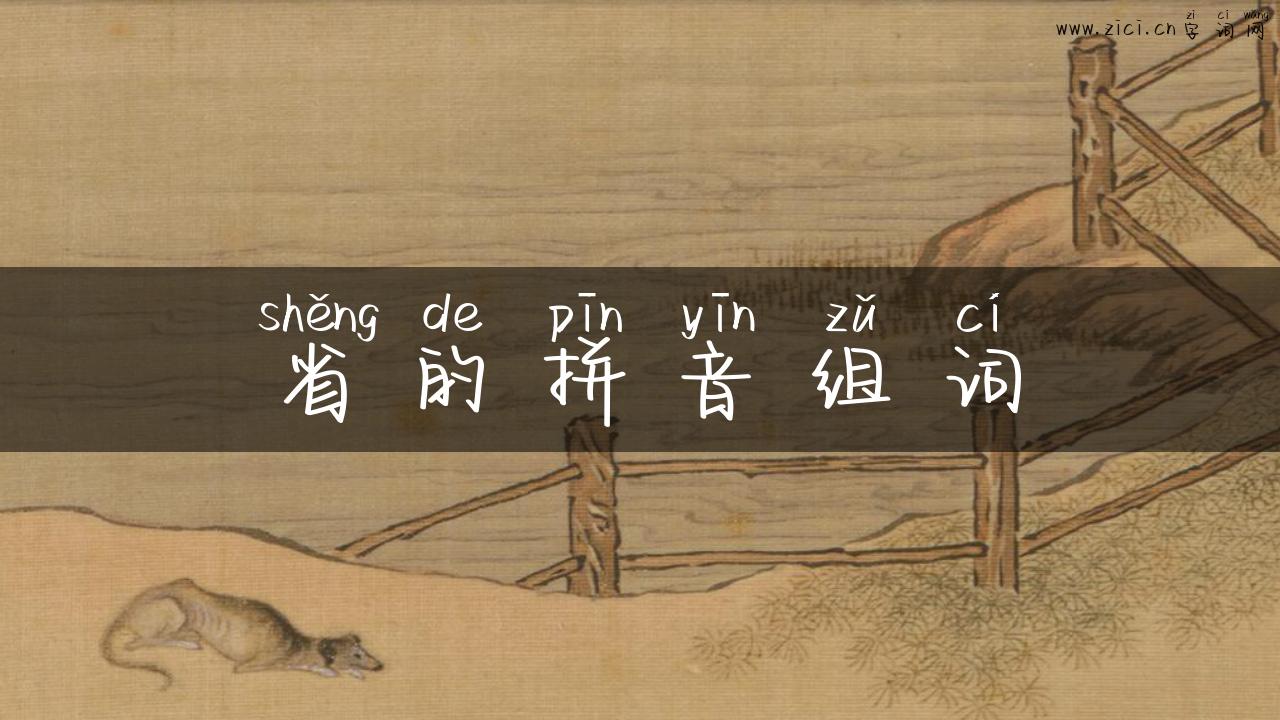 zì cí wǎng
www.zici.cn 字词网
shěng de pīn yīn zǔ cí
省的拼音组词